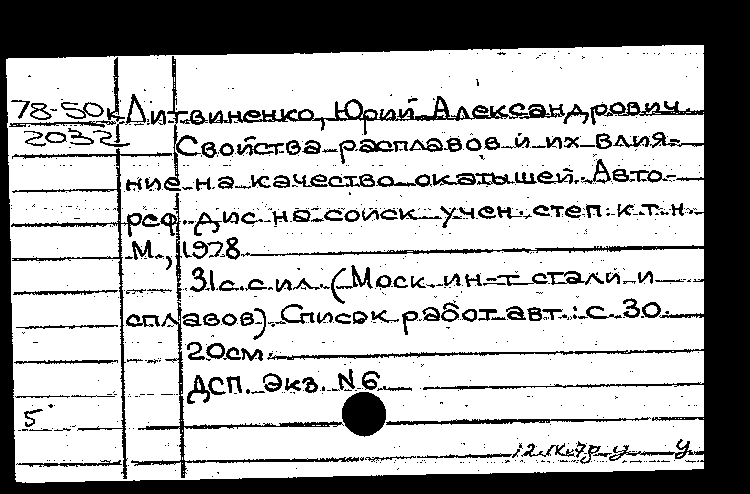 78-50к Литвиненко, Юрий Александрович.
2032 Свойства расплавов и их влия-
ние на качество окатышей. Авто-
реф. дис. на соиск. учен. степ. к.т.н.
М., 1978.
31с. с ил. (Моск. ин-т стали и
сплавов). Список работ авт.: с. 30.
20см.
ДСП. Экз. N 6
5
12.IX.78